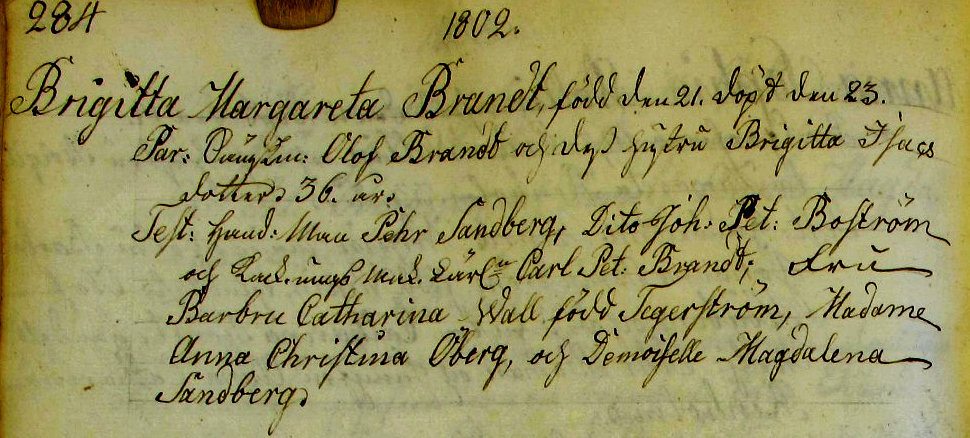 284 1802.
Brigitta Margareta Brandt, född den 21. döpt den 23.
Par: Olof Brandt och dess hustru Brigitta Isacs
dotter 36. år.
Test: Hand: Man Pehr Sandberg, Dito Joh: Pet: Boström
och Carl Pet: Brandt; Fru
Barbru Catharina Wall född Tegerström, Madame
Anna Christina Öberg, och Demoiselle Magdalena
Sandberg.